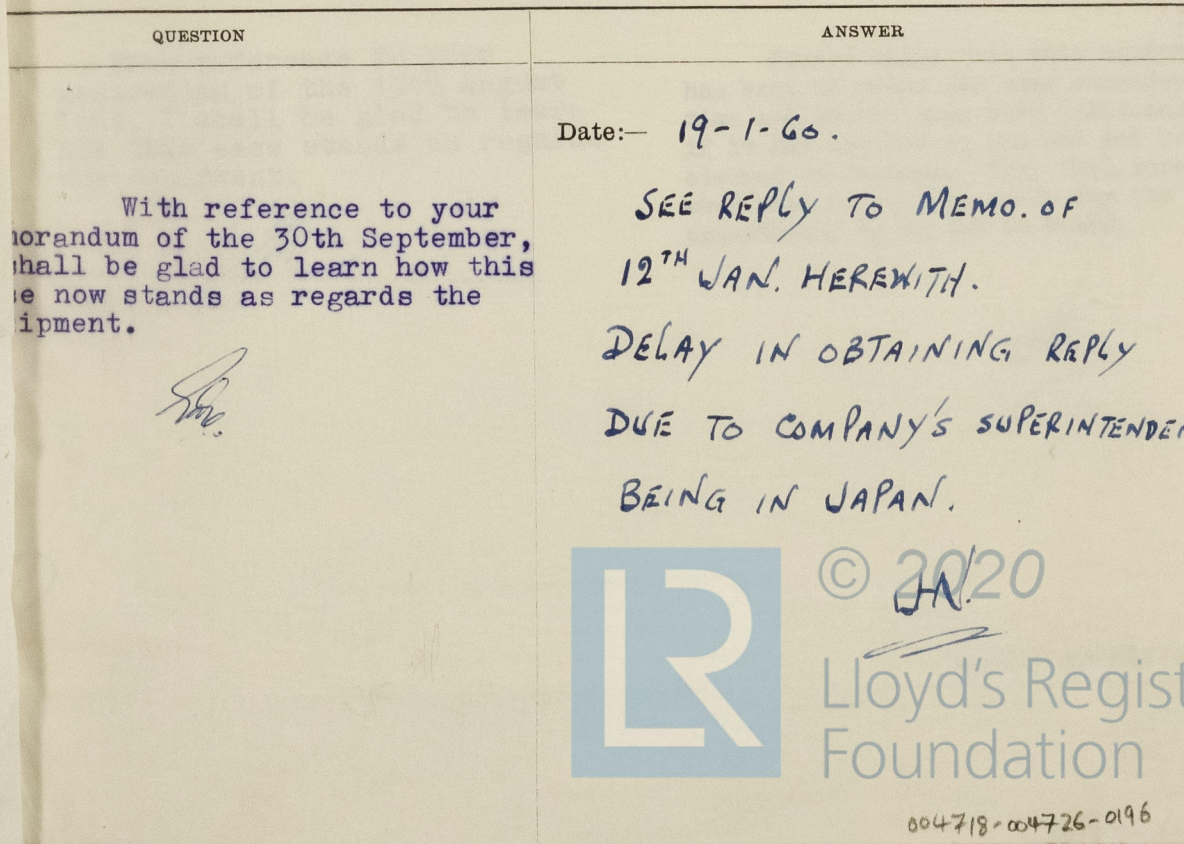 QUESTION
With reference to your
orandum of the 30th September,
hall be glad to learn how this
e now stands as regards the
ipment.
ANSWER
Date:— 19-1-60.
SEE REPLY TO MEMO. OF
12TH JAN. HEREWITH.
DELAY IN OBTAINING REPLY
DUE TO COMPANY'S SUPERINTENDEN
BEING IN JAPAN.
© 2020
LR
Lloyd's Regist
Foundation
004718-004726-0196